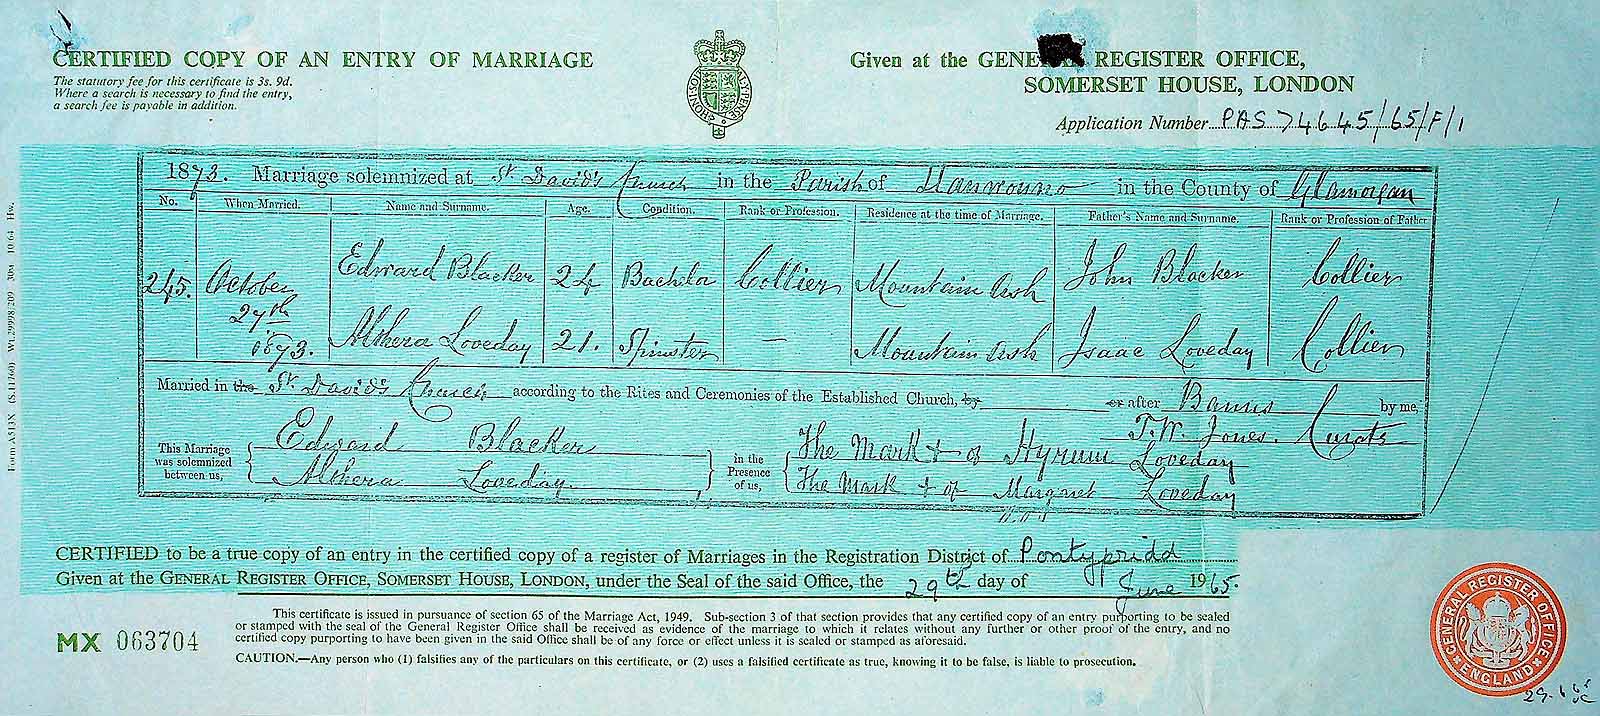 CERTIFIED COPY OF AN ENTRY OF MARRIAGE
The statutory fee for this certificate is 3s. 9d.
Where a search is necessary to find the entry,
a search fee is payable in addition.
HONI·SOI QUI MAL·Y·PENSE
Given at the GENERAL REGISTER OFFICE,
SOMERSET HOUSE, LONDON
Application Number PAS 74645/65/F/1
1873. Marriage solemnized at St. David's Church in the Parish of Llanwouno in the County of Glamorgan
No. When Married. Name and Surname. Age. Condition. Rank or Profession. Residence at the time of Marriage. Father's Name and Surname. Rank or Profession of Father
245. October 27th 1873. Edward Blacker 24 Bachelor Collier Mountain Ash John Blacker Collier
Althera Loveday 21. Spinster — Mountain Ash Isaac Loveday Collier
Married in the St. David's Church according to the Rites and Ceremonies of the Established Church, by or after Banns by me,
T. W. Jones. Curate
This Marriage was solemnized between us, Edward Blacker in the Presence of us, The Mark + of Hyrum Loveday
Althera Loveday. The Mark + of Margret Loveday
CERTIFIED to be a true copy of an entry in the certified copy of a register of Marriages in the Registration District of Pontypridd
Given at the GENERAL REGISTER OFFICE, SOMERSET HOUSE, LONDON, under the Seal of the said Office, the 29th day of June 1965.
This certificate is issued in pursuance of section 65 of the Marriage Act, 1949. Sub-section 3 of that section provides that any certified copy of an entry purporting to be sealed
or stamped with the seal of the General Register Office shall be received as evidence of the marriage to which it relates without any further or other proof of the entry, and no
certified copy purporting to have been given in the said Office shall be of any force or effect unless it is sealed or stamped as aforesaid.
CAUTION.—Any person who (1) falsifies any of the particulars on this certificate, or (2) uses a falsified certificate as true, knowing it to be false, is liable to prosecution.
MX 063704
GENERAL REGISTER OFFICE ENGLAND
Form A513X (S.11760) Wt.29998/209 30m 10/64 Hw.